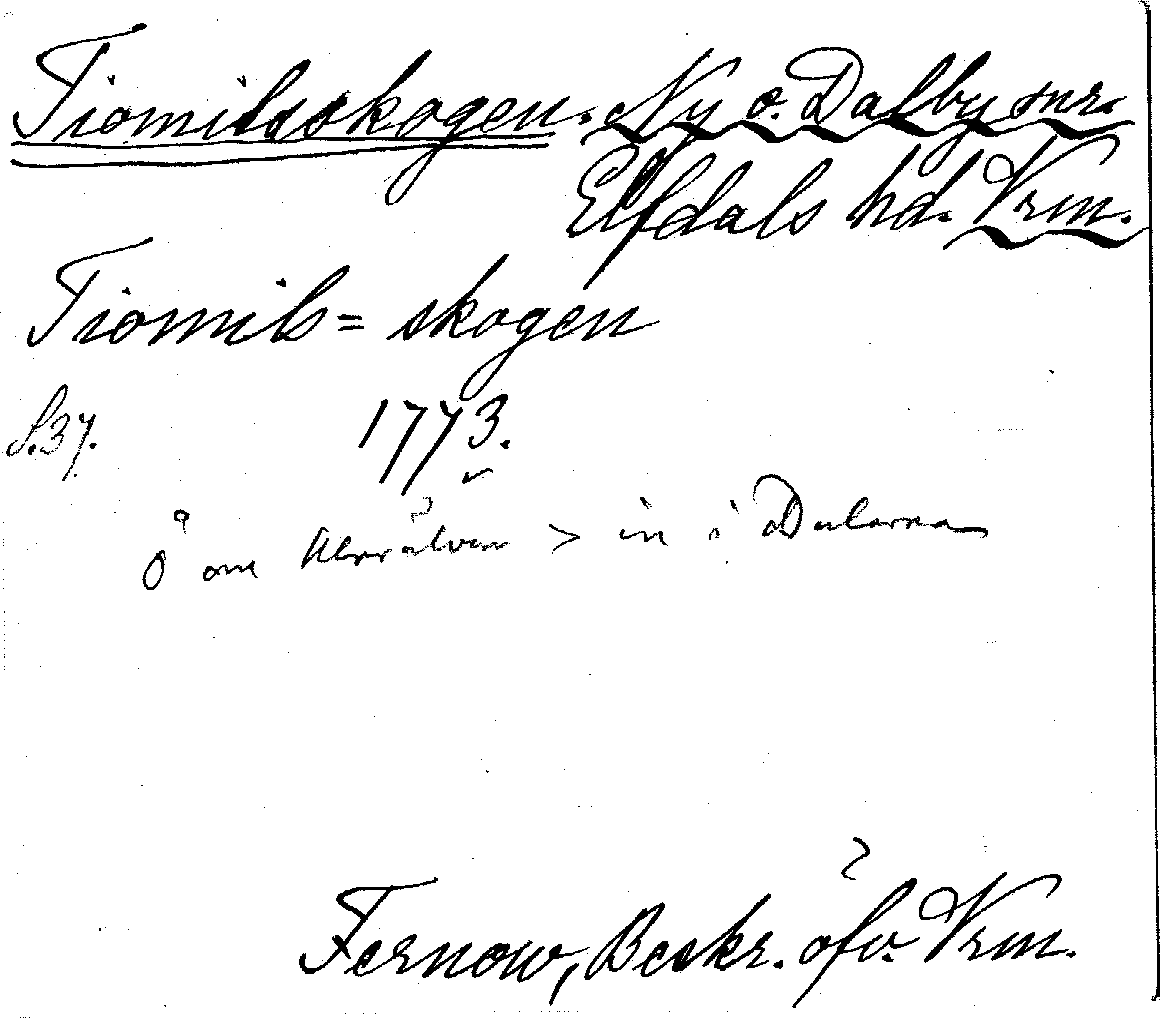 Tiomilsskogen. Ny o. Dalby snr.
Elfdals hd. Vrm.
Tiomils= skogen
S. 37. 1773.
Ö om klarälven > in i Dalarna
Fernow, Beskr. öfv. Vrm.